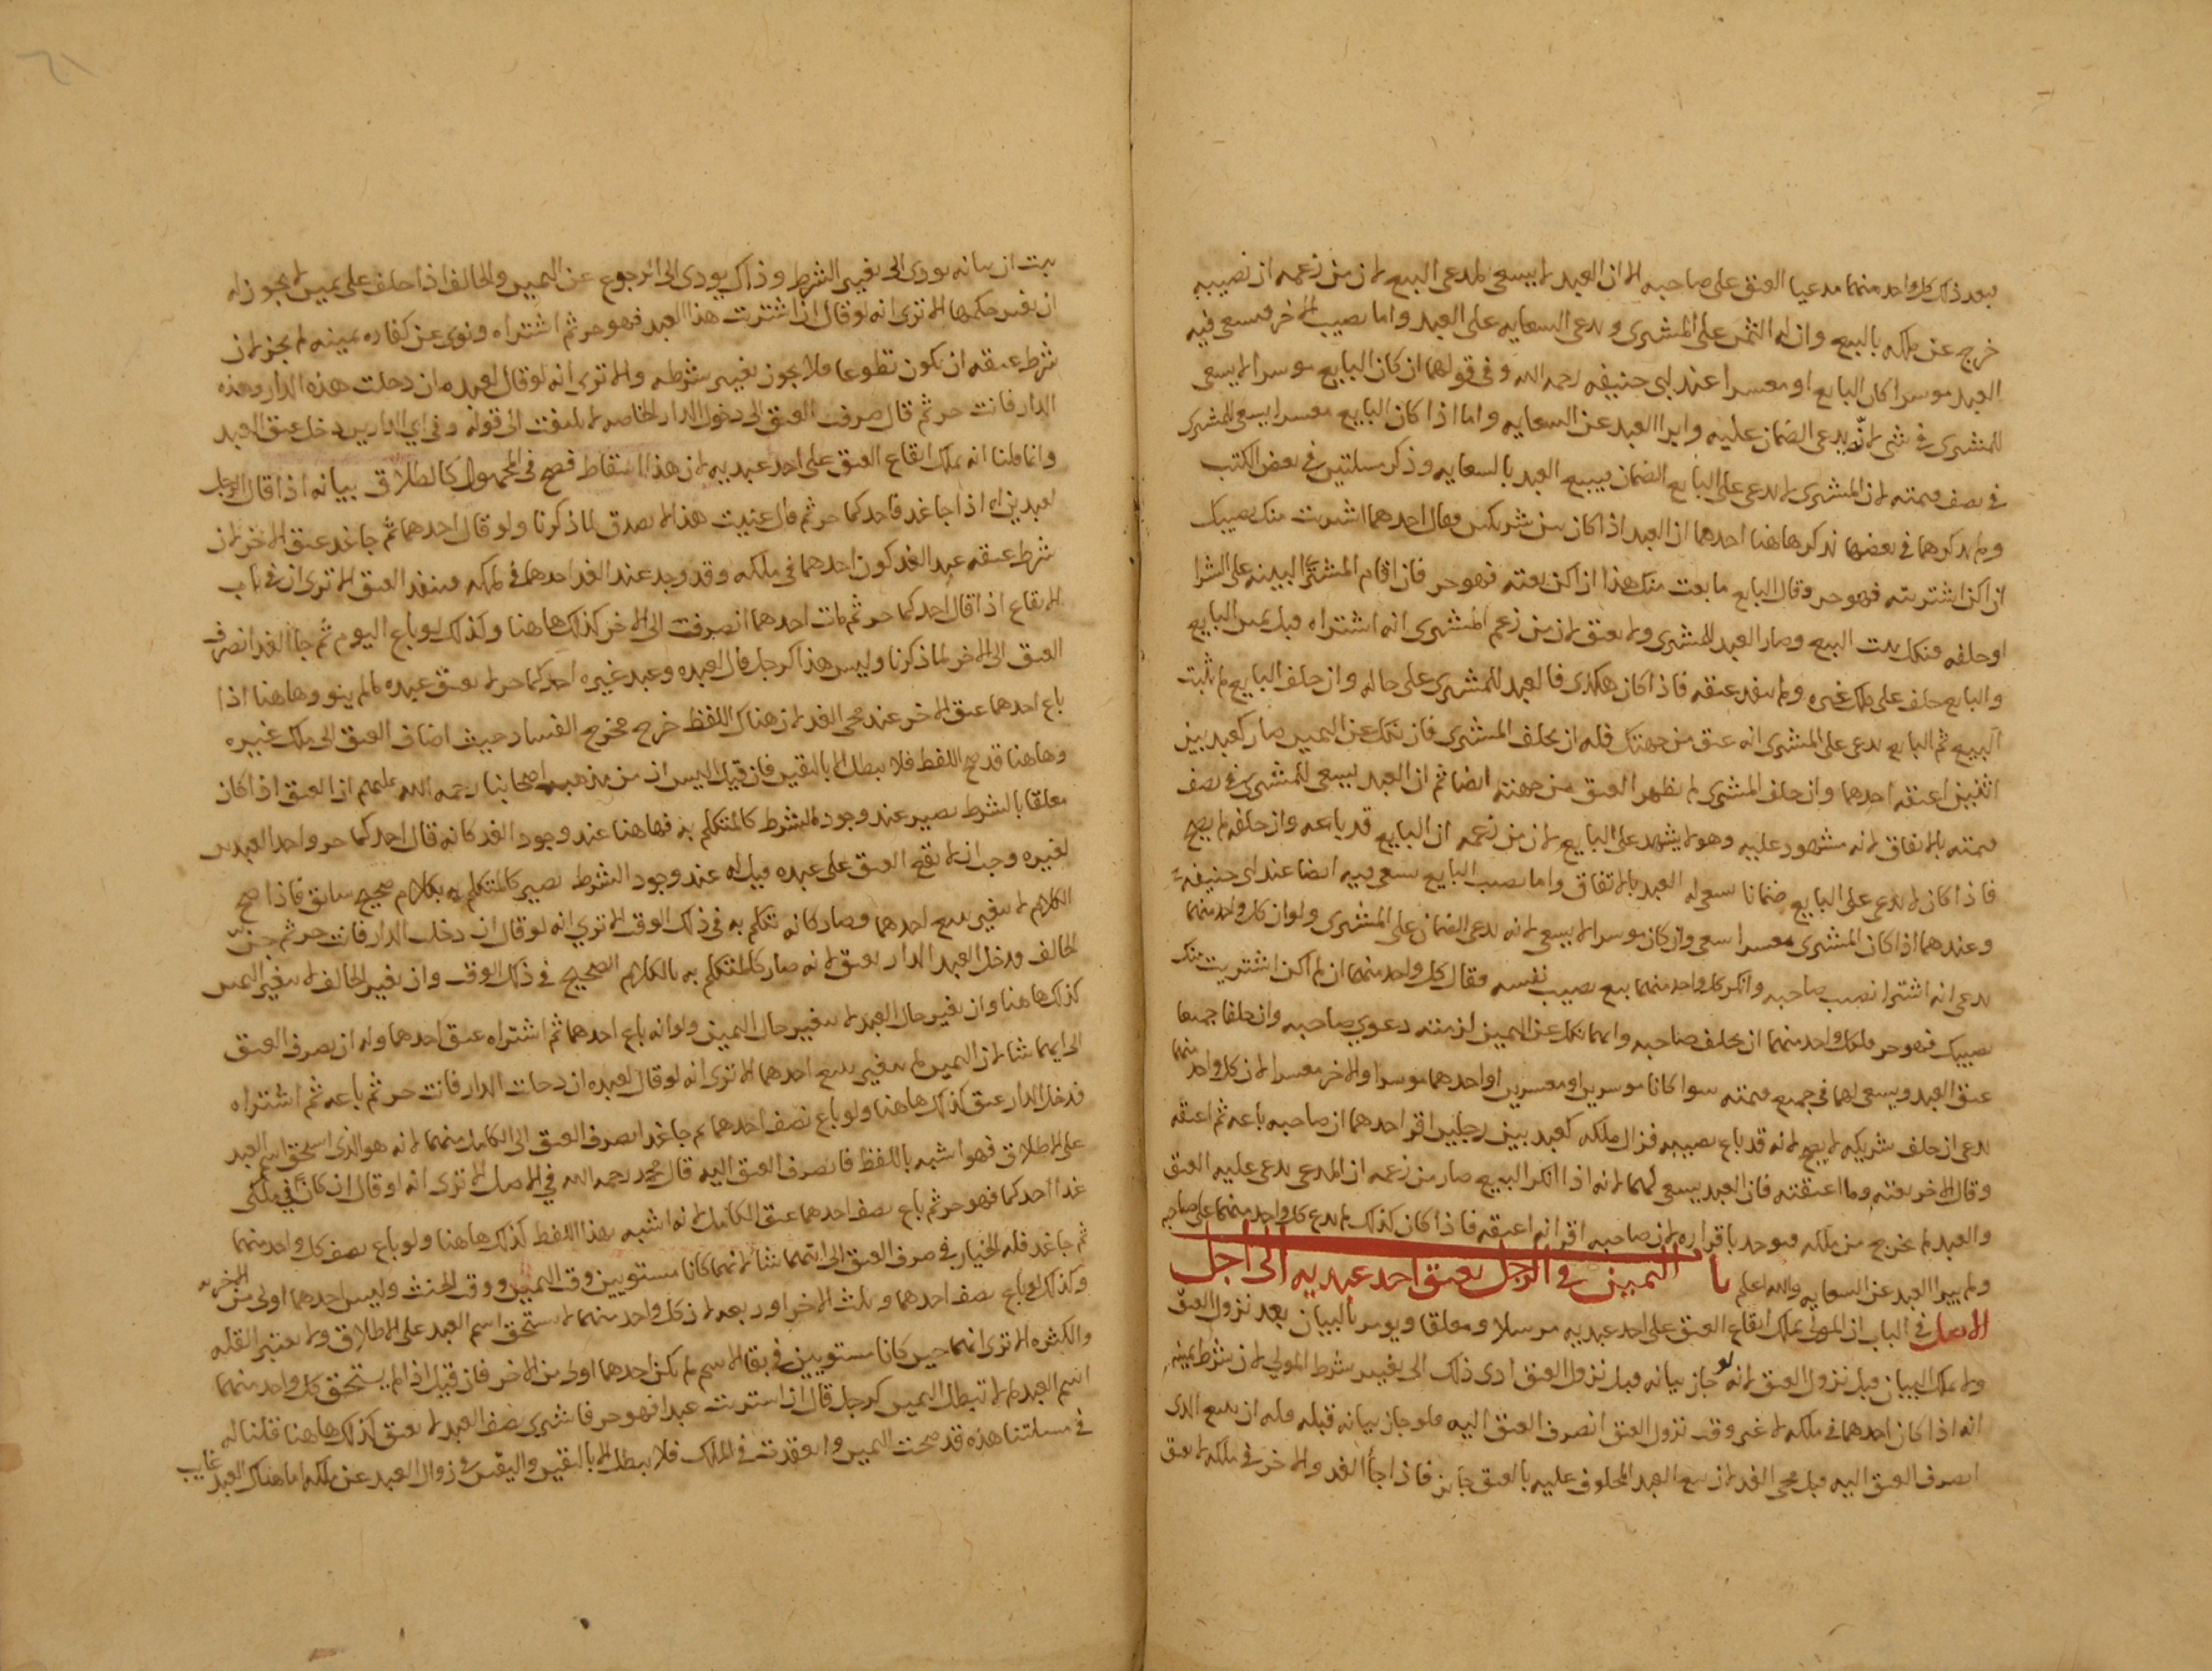 فبعد ذلك كل واحد منهما مدعيا العتق على صاحبه الا ان العبد لا يسعى لمدعى البيع لان من زعمه ان نصيبه
خرج عن ملكه بالبيع وان له الثمن على المشترى ويدعى السعايه على العبد واما نصيب الاخر فيسعى فيه
العبد موسرا كان البايع او معسرا عند ابى حنيفه رحمه الله وفى قولهما ان كان البايع موسرا لا يسعى
للمشترى فى شى لانه يدعى الضمان عليه وابرا العبد عن السعايه واما اذا كان البايع معسرا يسعى للمشترى
فى نصف قيمته لان المشترى لا يدعى على البايع الضمان فيبيع العبد بالسعايه وذكر مسلتين فى بعض الكتب
ولم يذكرهما فى بعضها نذكرها هنا احدهما ان العبد اذا كان بين شريكين فقال احدهما اشتريت منك نصيبك
ان اكن اشتريته فهو حر وقال البايع ما بعت منك هذا ان اكن بعته فهو حر فان اقام المشترى البينه على الشرا
او حلفه فنكل ثبت البيع وصار العبد للمشترى ولا يعتق لان من زعم المشترى انه اشتراه قبل يمين البايع
والبايع حلف على ملك غيره ولم ينفد عتقه فاذا كان هكذى فالعبد للمشترى على حاله وان حلف البايع لم يثبت
البيع ثم البايع يدعى على المشترى انه عتق من جهتك فله ان يحلف المشترى فان نكل عن اليمين صار كعبد بين
اثنين اعتقه احدهما وان حلف المشترى لم يظهر العتق من جهته ايضا ثم ان العبد يسعى للمشترى فى نصف
قيمته بالاتفاق لانه مشهود عليه وهو لا يشهد على البايع لان من زعمه ان البايع قد باعه وان حلفه لم يصح
فاذا كان لا يدعى على البايع ضمانا سعى له العبد بالاتفاق واما نصيب البايع سعى فيه ايضا عند ابى حنيفه
وعندهما اذا كان المشترى معسرا سعى وان كان موسرا لا يسعى لانه يدعى الضمان على المشترى ولو ان كل واحد منهما
يدعى انه اشترا نصيب صاحبه وانكر كل واحد منهما بيع نصيب نفسه فقال كل واحد منهما ان لم اكن اشتريت منك
نصيبك فهو حر فلكل واحد منهما ان يحلف صاحبه وايهما نكل عن اليمين لزمته دعوى صاحبه وان حلفا جميعا
عتق العبد ويسعى لهما فى جميع قيمته سوا كانا موسرين او معسرين او احدهما موسرا والاخر معسرا لان كل واحد منهما
يدعى ان حلف شريكه لا يصح لانه قد باع نصيبه فزال ملكه كعبد بين رجلين اقر احدهما ان صاحبه باعه ثم اعتقه
وقال الاخر بعته وما اعتقته فان العبد يسعى لهما لانه اذا انكر البيع صار من زعمه ان المدعى يدعى عليه العتق
والعبد لم يخرج من ملكه فيوخد باقراره لان صاحبه اقر انه اعتقه فاذا كان كذلك لم يدع كل واحد منهما على صاحبه
ولم يبرا العبد عن السعايه والله اعلم با اليمين فى الرجل يعتق احد عبديه الى اجل
الاصل فى الباب ان المولى يملك ايقاع العتق على احد عبديه مرسلا ومعلقا ويومر بالبيان بعد نزول العتق
ولا يملك البيان قبل نزول العتق لانه لو جاز بيانه قبل نزول العتق ادى ذلك الى تغيير شرط المولى لان شرط يمينه
انه اذا كان احدهما فى ملكه لا غير وقت نزول العتق انصرف العتق اليه فلو جاز بيانه قبله فله ان يبيع الذى
انصرف العتق اليه قبل مجى الغد لان بيع العبد المحلوف عليه بالعتق جايز فاذا جا الغد والاخر فى ملكه لا يعتق
ثبت ان بيانه يودى الى تغيير الشرط وذاك يودى الى الرجوع عن اليمين والحالف اذا حلف على يمين لا يجوز له
ان يغير حكمها الا ترى انه لو قال ان اشتريت هذا العبد فهو حر ثم اشتراه ونوى عن كفاره يمينه لم يجز لان
شرط عتقه ان يكون تطوعا فلا يجوز تغيير شرطه والا ترى انه لو قال لعبده ان دخلت هذه الدار وهذه
الدار فانت حر ثم قال صرفت العتق الى دخول الدار الخاصه لا يلتفت الى قوله وفى اي الدارين دخل عتق العبد
وانما قلنا انه يملك ايقاع العتق على احد عبديه لان هذا اسقاط فصح فى المجهول كالطلاق بيانه اذا قال الرجل
لعبدين له اذا جا غد فاحدكما حر ثم قال عنيت هذا لا يصدق لما ذكرنا ولو قال احدهما ثم جا غد عتق الاخر لان
شرط عتقه عبد الغد كون احدهما فى ملكه وقد وجد عند الغد احدهما فى ملكه فينفد العتق الا ترى ان فى باب
الايقاع اذا قال احدكما حر ثم مات احدهما انصرفت الى الاخر كذلك هاهنا وكذلك لو باع اليوم ثم جا الغد انصرف
العتق الى الاخر لما ذكرنا وليس هذا كرجل قال لعبده وعبد غيره احدكما حر لا يعتق عبده ما لم ينو وهاهنا اذا
باع احدهما عتق الاخر عند مجى الغد لان هناك اللفظ خرج مخرج الفساد حيث اضاف العتق الى ملك غيره
وهاهنا قد صح اللفظ فلا يبطل الا باليقين فان قيل اليس ان من مذهب اصحابنا رحمه الله عليهم ان العتق اذا كان
معلقا بالشرط يصير عند وجود الشرط كالمتكلم به فهاهنا عند وجود الغد كانه قال احدكما حر واحد العبدين
لغيره وجب ان لا يقع العتق على عبده قيل له عند وجود الشرط يصير كالمتكلم به بكلام صحيح سابق فاذا صح
الكلام لا يتغير ببيع احدهما وصار كانه تكلم به فى ذلك الوقت الا ترى انه لو قال ان دخلت الدار فانت حر ثم جن
الحالف ودخل العبد الدار يعتق لانه صار كالمتكلم به بالكلام الصحيح فى ذلك الوقت وان تغير الحالف لا يتغير اليمين
كذلك هاهنا وان تغير حال العبد لا يتغير حال اليمين ولو انه باع احدهما ثم اشتراه عتق احدهما وله ان يصرف العتق
الى ايهما شا لان اليمين لم يتغير ببيع احدهما الا ترى انه لو قال لعبده ان دخلت الدار فانت حر ثم باعه ثم اشتراه
فدخل الدار عتق كذلك هاهنا ولو باع نصف احدهما ثم جا غد انصرف العتق الى الكامل منهما لانه هو الذى استحق اسم العبد
على الاطلاق فهو اشبه باللفظ فانصرف العتق اليه قال محمد رحمه الله فى الاصل الا ترى انه لو قال ان كانا فى ملكى
غدا احدكما فهو حر ثم باع نصف احدهما عتق الكامل لانه اشبه بهذا اللفظ كذلك هاهنا ولو باع نصف كل واحد منهما
ثم جا غد فله الخيار فى صرف العتق الى ايهما شا لانهما كانا مستويين وقت اليمين ووقت الحنث وليس احدهما اولى من الاخر
وكذلك لو باع نصف احدهما وثلث الاخر او ربعه لان كل واحد منهما لا يستحق اسم العبد على الاطلاق ولا يعتبر القله
والكثره الا ترى انهما حين كانا مستويين فى بقا الاسم لم يكن احدهما اولى من الاخر فان قيل اذا لم يستحق كل واحد منهما
اسم العبد لم لا تبطل اليمين كرجل قال ان اشتريت عبدا فهو حر فاشترى نصف العبد لا يعتق كذلك هاهنا قلنا له
فى مسلتنا هذه قد صحت اليمين وانعقدت فى الملك فلا يبطل الا باليقين واليقين فى زوال العبد عن ملكه اما هناك العبد غايب